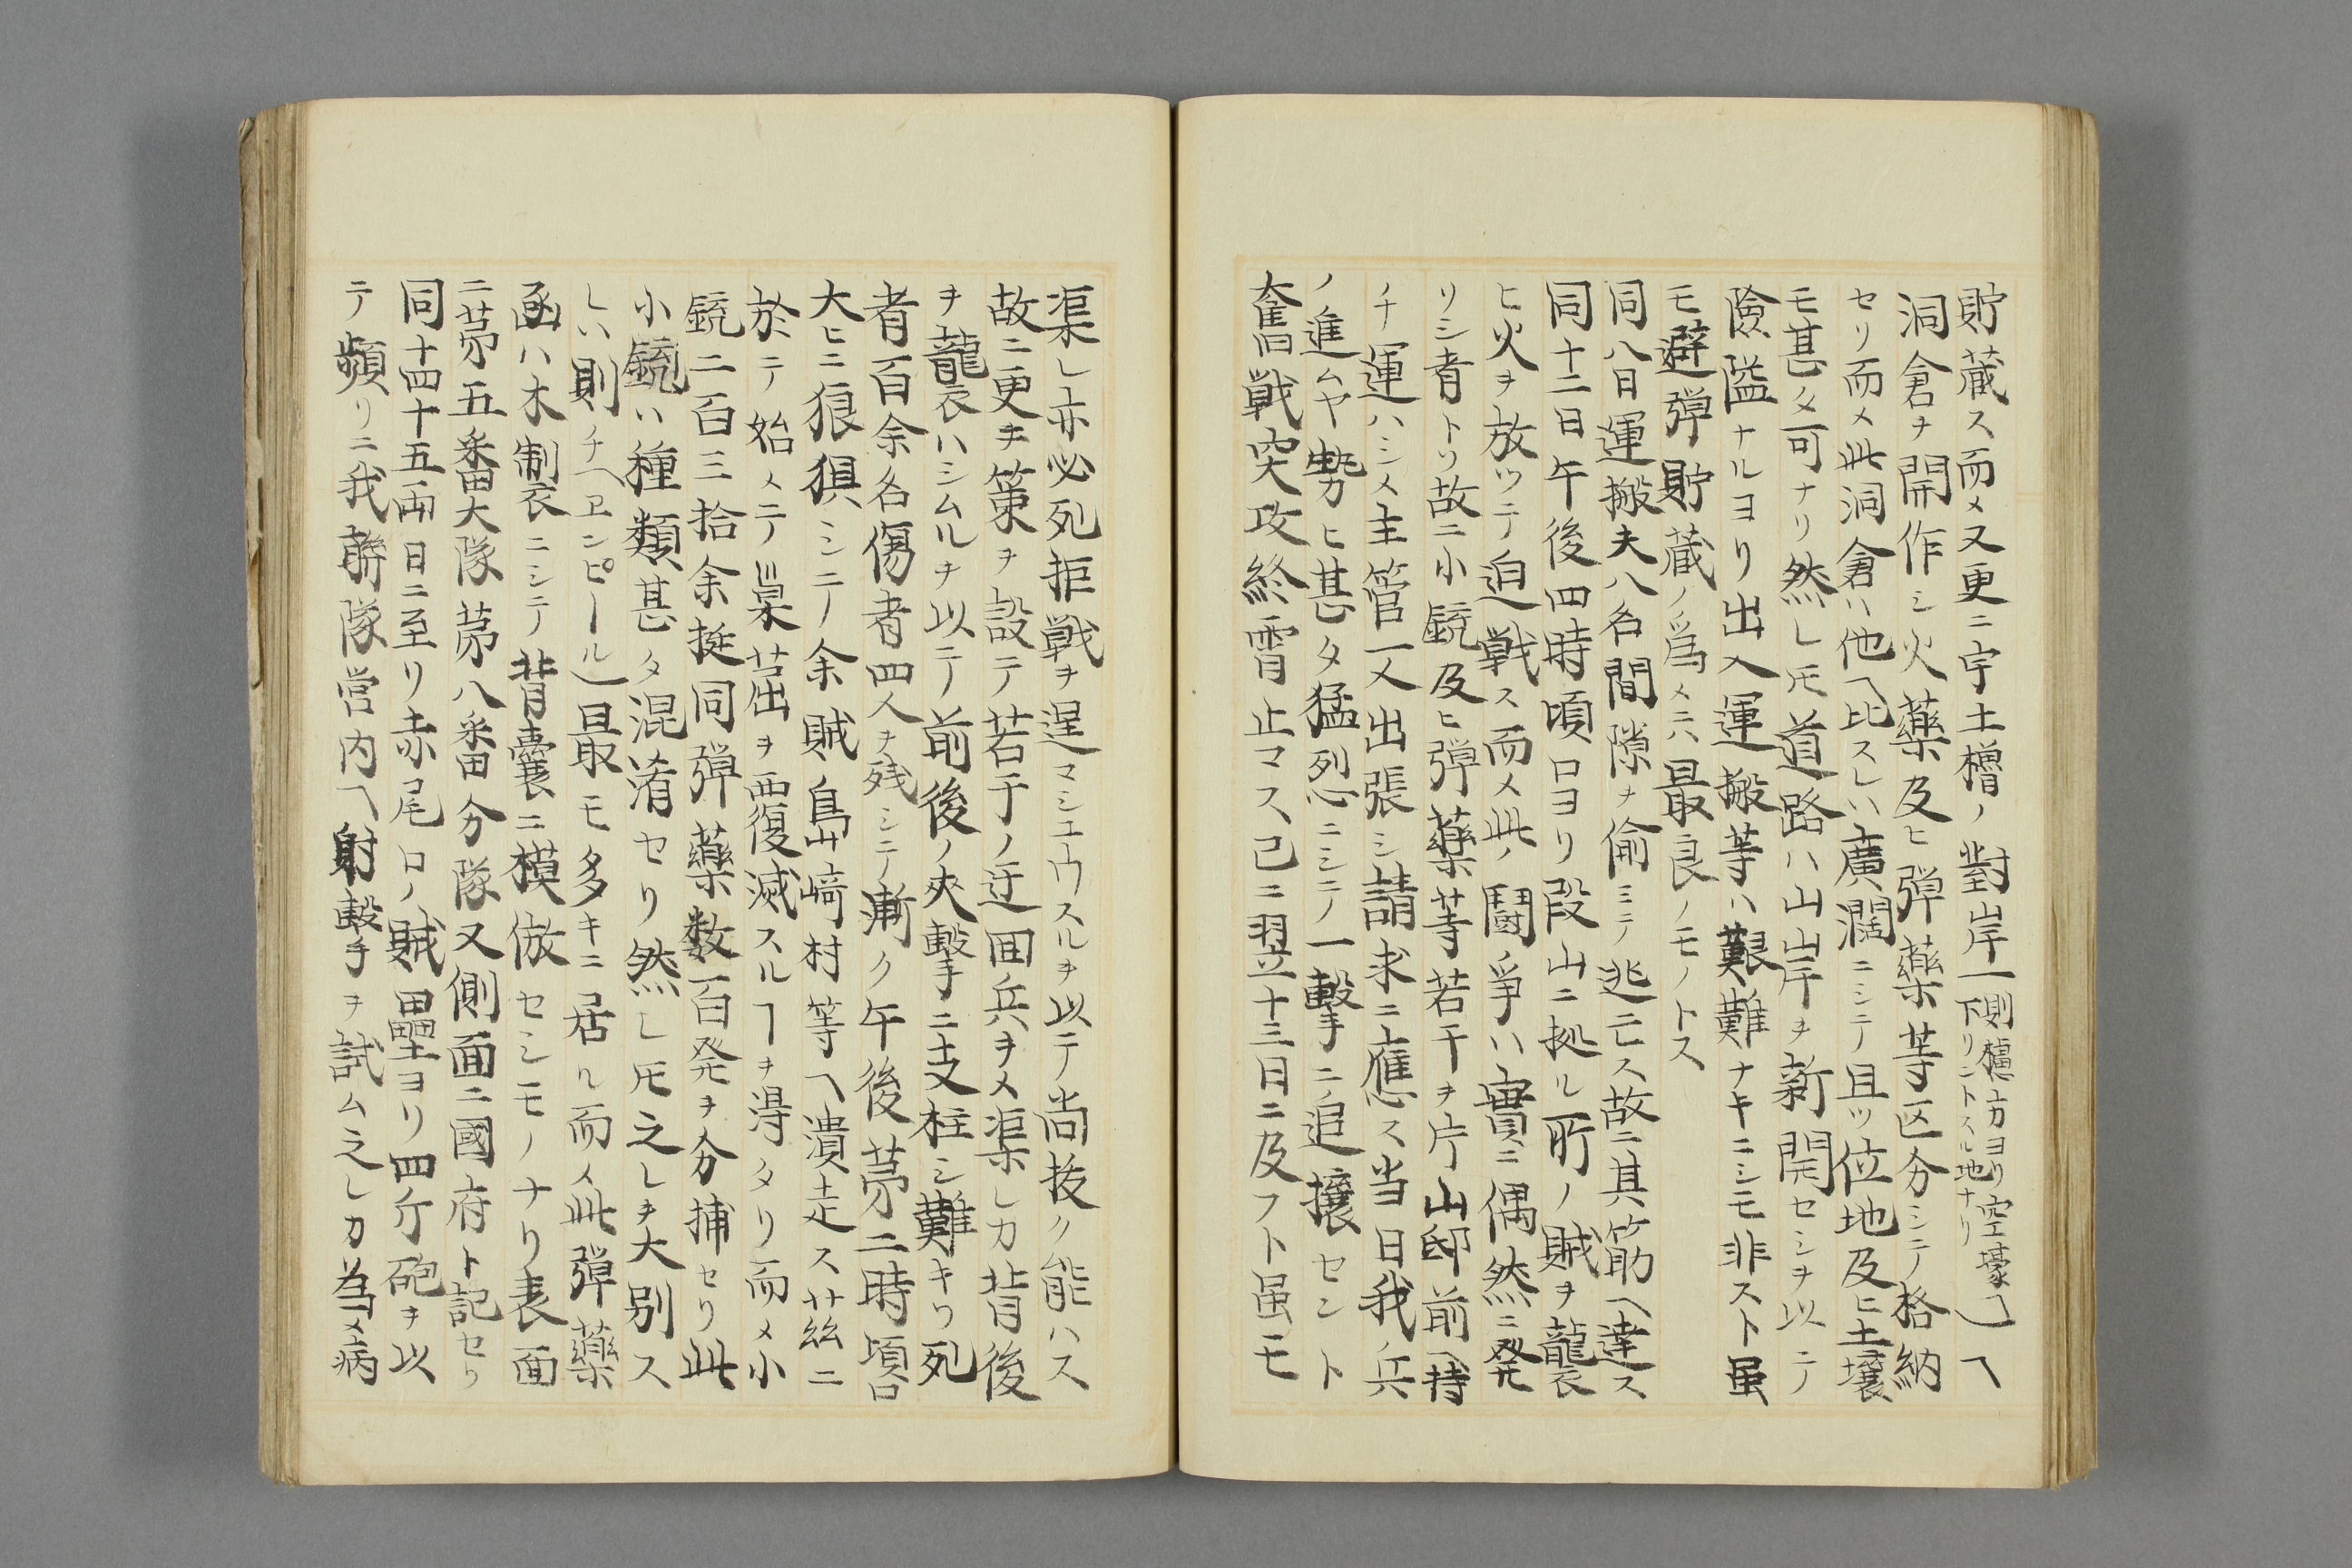 貯蔵ス而メ又更ニ宇土櫓ノ對岸一側(櫨方ヨリ空壕下リントスル地ナリ)ヘ
洞倉ヲ開作シ火藥及ヒ弾藥等区分シテ格納
セリ而メ此洞倉ハ他ヘ比スレハ廣濶ニシテ且ツ位地及ヒ土壌
モ甚タ可ナリ然レ𪜈道路ハ山岸ヲ新開セシヲ以テ
險隘ナルヨリ出入運搬等ハ艱難ナキニシモ非スト虽
モ避弾貯蔵ノ為メニハ最良ノモノトス
同八日運搬夫八名間隙ヲ偷ミテ逃亡ス故ニ其筋ヘ達ス
同十二日午後四時頃ロヨリ段山ニ拠ル所ノ賊ヲ襲
ヒ火ヲ放ツテ迫戦ス而メ此ノ鬪爭ハ實ニ偶然ニ発
リシ者トリ故ニ小銃及ヒ弾藥等若干ヲ片山邸前ヘ持
チ運ハシメ主管一人出張シ請求ニ應ス当日我ノ兵
ノ進ムヤ勢ヒ甚タ猛烈ニシテ一撃ニ追攘セント
奮戦突攻終霄止マス已ニ翌十三日ニ及フト虽モ
渠レ亦必死拒戦ヲ逞マシユウスルヲ以テ尚抜ク能ハス
故ニ更ヲ策ヲ設テ若干ノ迂囲兵ヲメ渠レカ背後
ヲ襲ハシムルヲ以テ前後ノ夾撃ニ支柱シ難キリ死
者百余名傷者四人ヲ残シテ漸ク午後第二時頃ロ
大ヒニ狼狽シテ余賊島崎村等ヘ潰走ス茲ニ
於テ始メテ巣窟ヲ覆滅スルヿヲ得タリ而メ小
銃二百三拾余挺同弾藥数百発ヲ分捕セリ此
小銃ハ種類甚タ混淆セリ然レ𪜈之レヲ大別ス
レハ則チ(ヱンピール)最モ多キニ居ル而メ此弾藥
函ハ木製ニシテ背嚢ニ模倣セシモノナリ表面
ニ第五番大隊第八番分隊又側面ニ國府ト記セリ
同十四十五両日ニ至リ赤尾口ノ賊壘ヨリ四斤砲ヲ以
テ頻リニ我聯隊営内ヘ射撃ヲ試ム之レカ為メ病